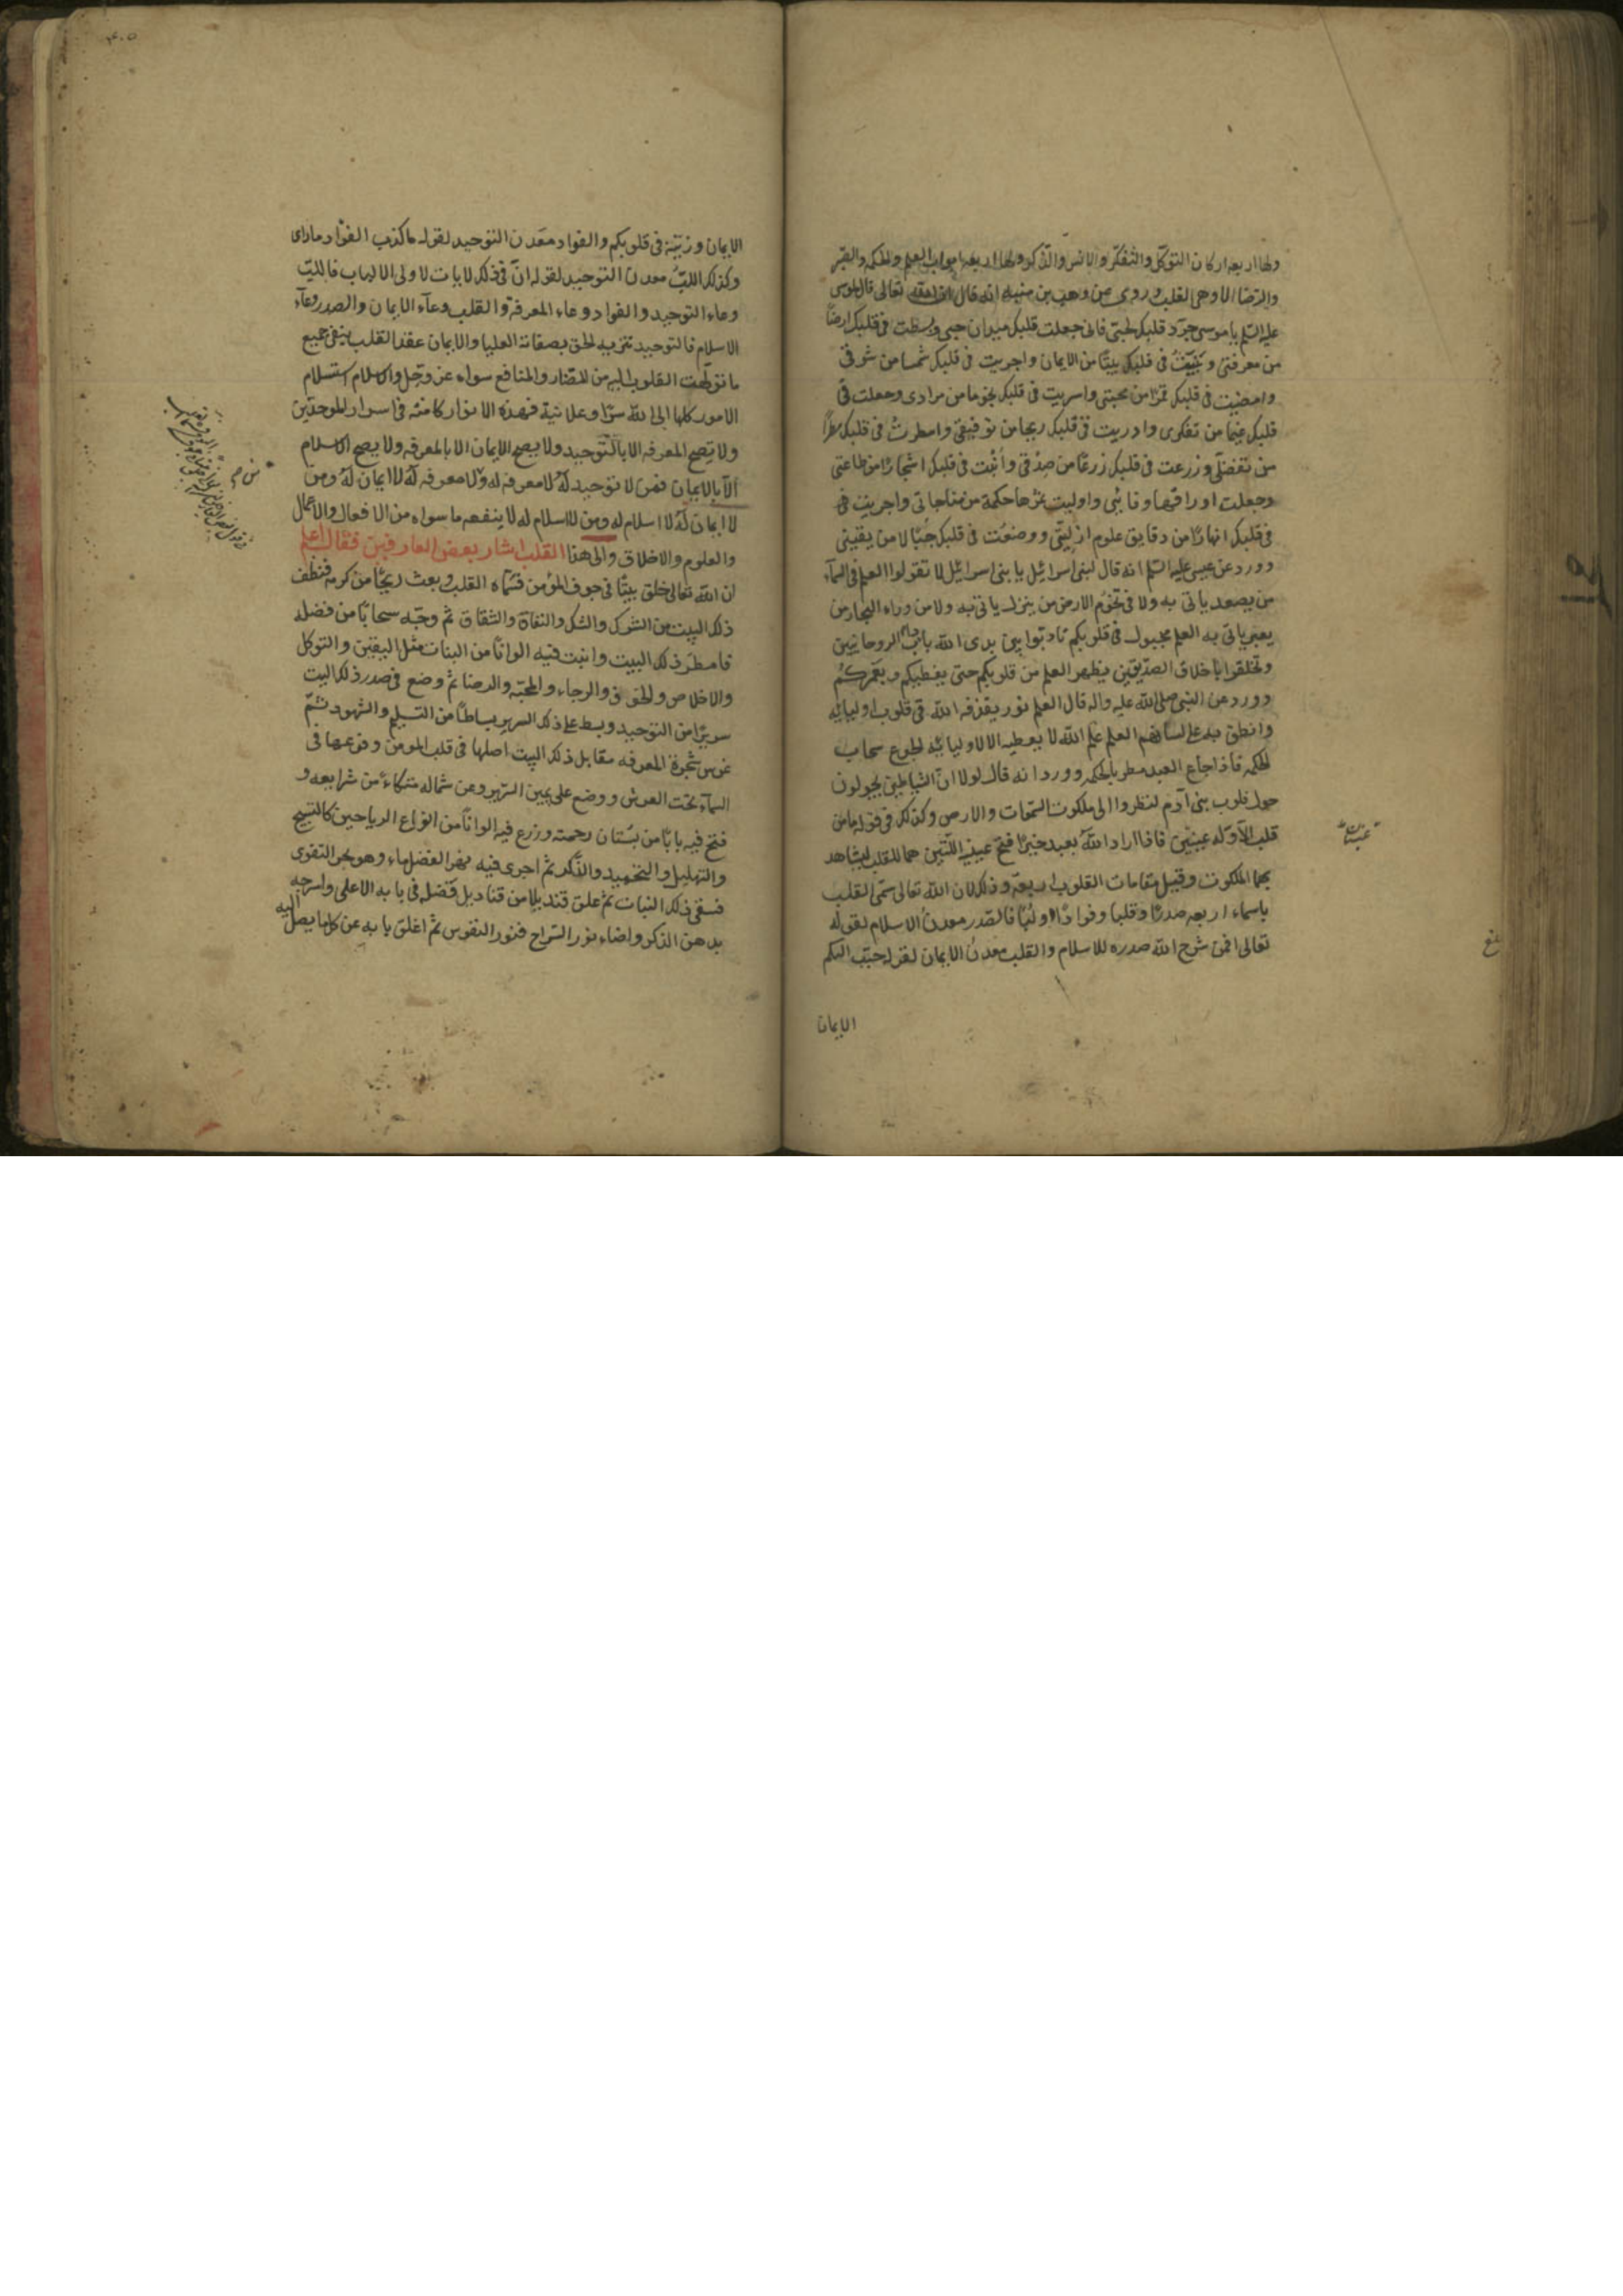 ولها اربعه اركان التوكل والتفكر والانس والذكر ولها اربعه ابواب العلم والحكمه والصبر
والرضا الا وهى القلب وروى عن وهب بن منبه انه قال ان الله تعالى قال لموسى
عليه السلم يا موسى جرد قلبك لحبى فانى جعلت قلبك ميدان حبى وبسطت فى قلبك ارضا
من معرفتى وبنيت فى قلبك بيتا من الايمان واجريت فى قلبك شمسا من شوقى
وامضيت فى قلبك قمرا من محبتى واسريت فى قلبك نجوما من مرادى وجعلت فى
قلبك غيما من تفكرى وادريت فى قلبك ريحا من توفيقى وامطرت فى قلبك مطرا
من تفضلى وزرعت فى قلبك زرعا من صدقى وأنبت فى قلبك اشجارا من طاعتى
وجعلت اوراقها وفائى واوليت ثمرها حكمة من مناجاتى واجريت فى
فى قلبك انهارا من دقايق علوم ازليتى ووضعت فى قلبك جبالا من يقينى
وورد عن عيسى عليه السلم انه قال لبنى اسرائيل يا بنى اسرائيل لا تقولوا العلم فى السمآء
من يصعد ياتى به ولا فى تخوم الارض من ينزل ياتى به ولا من وراء البحار من
يعبر ياتى به العلم مجبول فى قلوبكم تادبوا بين يدى الله باداب الروحانيين
وتخلقوا باخلاق الصديقين يظهر العلم من قلوبكم حتى يغطيكم ويغمركم
وورد عن النبى صلى الله عليه واله قال العلم نور يقذفه الله فى قلوب اوليائه
وانطق به على لسانهم العلم علم الله لا يعطيه الا لاوليائه الجوع سحاب
الحكمه فاذا جاع العبد مطر بالحكمه وورد انه قال لولا ان الشياطين يجولون
حول قلوب بنى آدم لنظروا الى ملكوت السموات والارض وكذلك فى قوله ما من
قلب الا وله عينين فاذا اراد الله بعبد خيرا فتح عينيه اللتين هما للقلب ليشاهد
بهما الملكوت وقيل مقامات القلوب اربعة وذلك لان الله تعالى سمى القلب
باسماء اربعه صدرا وقلبا وفوادا ولبا فالصدر معدن الاسلام لقوله
تعالى افمن شرح الله صدره للاسلام والقلب معدن الايمان لقوله حبب اليكم
الايمان
عينان
بلغ
الايمان وزينه فى قلوبكم والفواد معدن التوحيد لقوله ما كذب الفؤاد ما راى
وكذلك اللب معدن التوحيد لقوله ان فى ذلك لايات لاولى الالباب فاللب
وعاء التوحيد والفواد وعاء المعرفة والقلب وعآء الايمان والصدر وعآء
الاسلام فالتوحيد تنزيه الحق بصفاته العليا والايمان عقد القلب بنفى جميع
ما تولهت القلوب اليه من المضار والمنافع سواه عز وجل والاسلام استسلام
الامور كلها الى الله سرا وعلانية فهذه الانوار كامنه فى اسرار الموحدين
ولا يصح المعرفه الا بالتوحيد ولا يصح الايمان الا بالمعرفه ولا يصح الاسلام
الا بالايمان فمن لا توحيد له لا معرفه له ولا معرفه له لا ايمان له ومن
لا ايمان له لا اسلام له ومن لا اسلام له لا ينفعه ما سواه من الافعال والاعمال
والعلوم والاخلاق والى هذا القلب اشار بعض العارفين فقال اعلم
ان الله تعالى خلق بيتا فى جوف المؤمن فسماه القلب وبعث ريحا من كرمه فنظف
ذلك البيت من الشرك والشك والنفاق والشقاق ثم وجه سحابا من فضله
فامطر ذلك البيت وانبت فيه الوانا من النبات مثل اليقين والتوكل
والاخلاص والخوف والرجاء والمحبه والرضا ثم وضع فى صدر ذلك البيت
سريرا من التوحيد وبسط على ذلك السرير بساطا من التسليم والشهود ثم
غرس شجرة المعرفه مقابل ذلك البيت اصلها فى قلب المومن وفرعها فى
السمآء تحت العرش ووضع على يمين السرير وعن شماله متكاء من شرايعه و
فتح فيه بابا من بستان رحمته وزرع فيه الوانا من انواع الرياحين كالتسبيح
والتهليل والتحميد والذكر ثم اجرى فيه نهر الفضل ماء وهو بحر التقوى
فسقى ذلك النبات ثم علق قنديلا من قناديل فضله فى بابه الاعلى واسرجه
بدهن الذكر واضاء نور السراج فنور النفوس ثم اغلق بابه عن كل ما يصل اليه